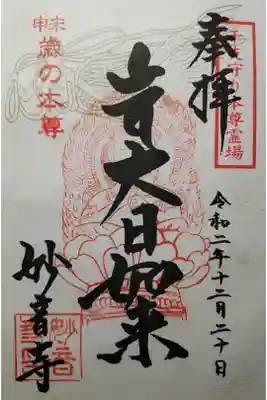 本尊霊場
奉拝
令和二年十二月二十日
大日如来
未申
歳の本尊
妙音寺